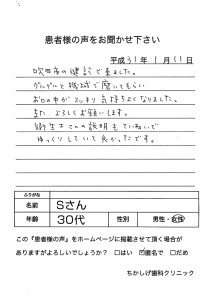 患者様の声をお聞かせ下さい
平成31年1月11日
吹田市の健診で来ました。
グルグルと機械で磨いてもらい
お口の中がスッキリ気持ちよくなりました。
また、よろしくお願いします。
衛生士さんの説明もていねいで
ゆっくりしていて良かったです。
ふりがな
名前 Sさん
年齢 30代 性別 男性・女性
この『患者様の声』をホームページに掲載させて頂く場合が
ありますがよろしいでしょうか? □はい ☑匿名で □だめ
ちかしげ歯科クリニック